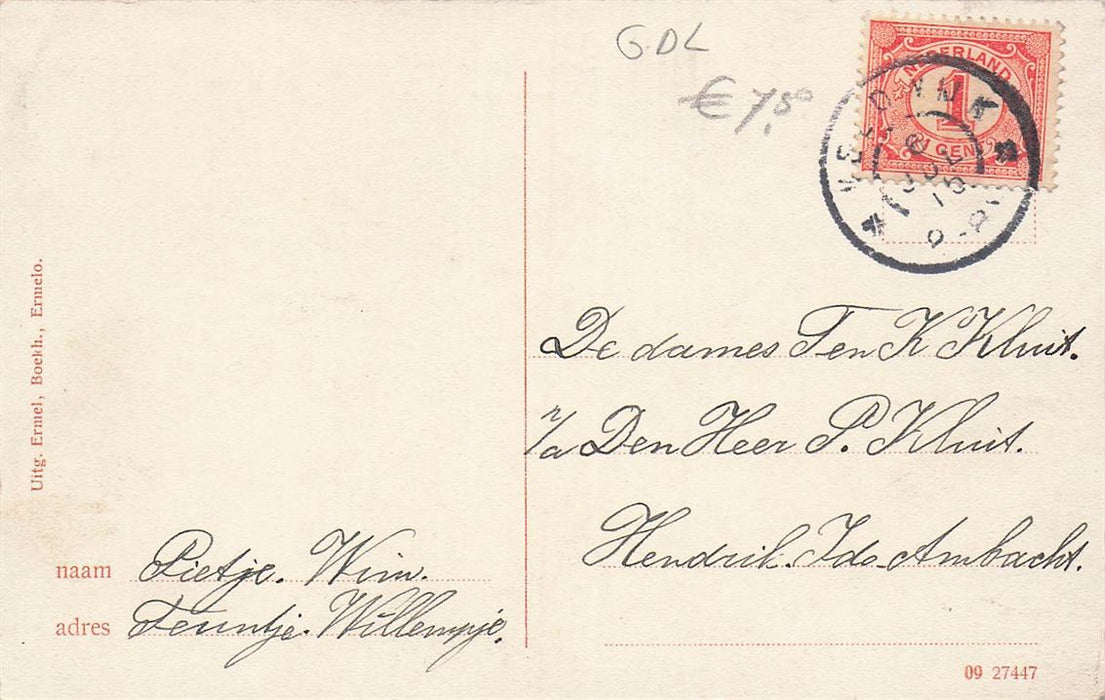 GDL
€ 7,50
NEDERLAND
1
CENT
Uitg. Ermel, Boekh., Ermelo.
De dames T en K Kluit.
p/a Den Heer P. Kluit.
Hendrik. Ido. Ambacht.
naam Pietje. Wim.
adres Teuntje. Willempje.
09 27447